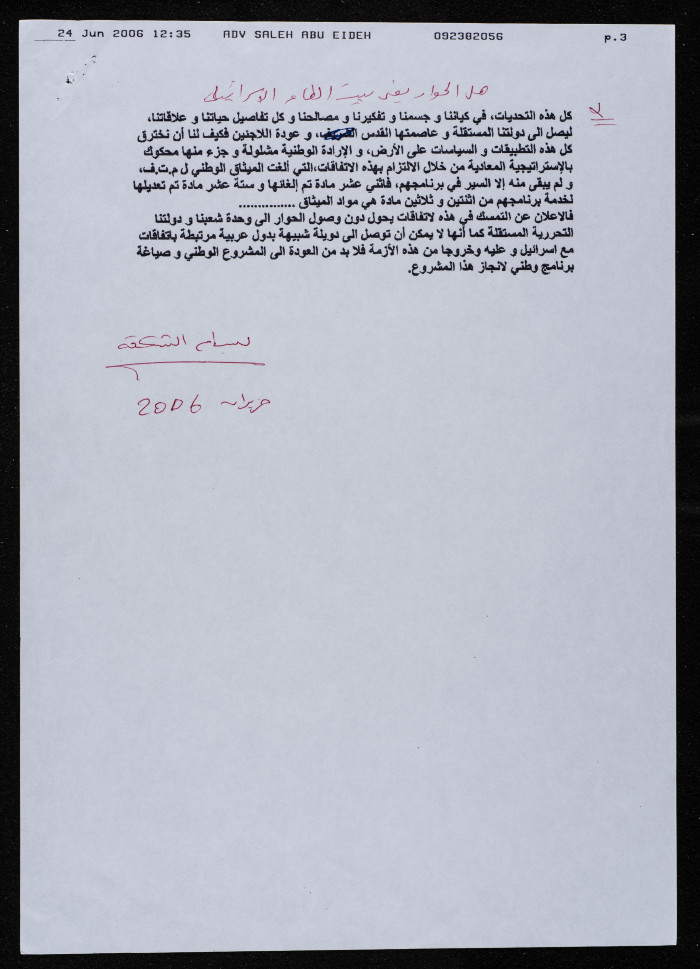 24 Jun 2006 12:35 ADV SALEH ABU EIDEH 092382056 p.3
هل الحوار يغير بيت الطاعة الإسرائيلي
كل هذه التحديات، في كياننا و جسمنا و تفكيرنا و مصالحنا و كل تفاصيل حياتنا و علاقاتنا،
ليصل الى دولتنا المستقلة و عاصمتها القدس و عودة اللاجئين فكيف لنا أن نخترق
كل هذه التطبيقات و السياسات على الأرض، و الإرادة الوطنية مشلولة و جزء منها محكوك
بالإستراتيجية المعادية من خلال الالتزام بهذه الاتفاقات،التي ألغت الميثاق الوطني ل م.ت.ف،
و لم يبقى منه إلا السير في برنامجهم، فاثني عشر مادة تم إلغائها و ستة عشر مادة تم تعديلها
لخدمة برنامجهم من اثنتين و ثلاثين مادة هي مواد الميثاق ...............
فالاعلان عن التمسك في هذه لاتفاقات يحول دون وصول الحوار الى وحدة شعبنا و دولتنا
التحررية المستقلة كما أنها لا يمكن أن توصل الى دويلة شبيهة بدول عربية مرتبطة باتفاقات
مع اسرائيل و عليه وخروجا من هذه الأزمة فلا بد من العودة الى المشروع الوطني و صياغة
برنامج وطني لانجاز هذا المشروع.
بسام الشكعة
حزيران 2006